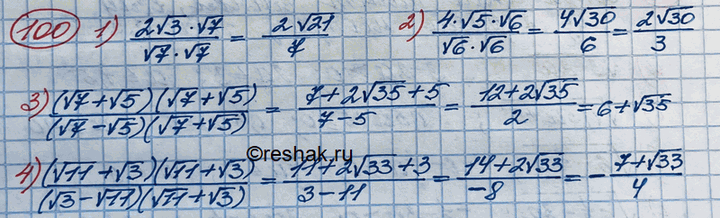 100 1) (2√3·√7)/(√7·√7) = (2√21)/7 2) (4·√5·√6)/(√6·√6) = (4√30)/6 = (2√30)/3
3) ((√7+√5)(√7+√5))/((√7-√5)(√7+√5)) = (7+2√35+5)/(7-5) = (12+2√35)/2 = 6+√35
©reshak.ru
4) ((√11+√3)(√11+√3))/((√3-√11)(√11+√3)) = (11+2√33+3)/(3-11) = (14+2√33)/(-8) = -(7+√33)/4